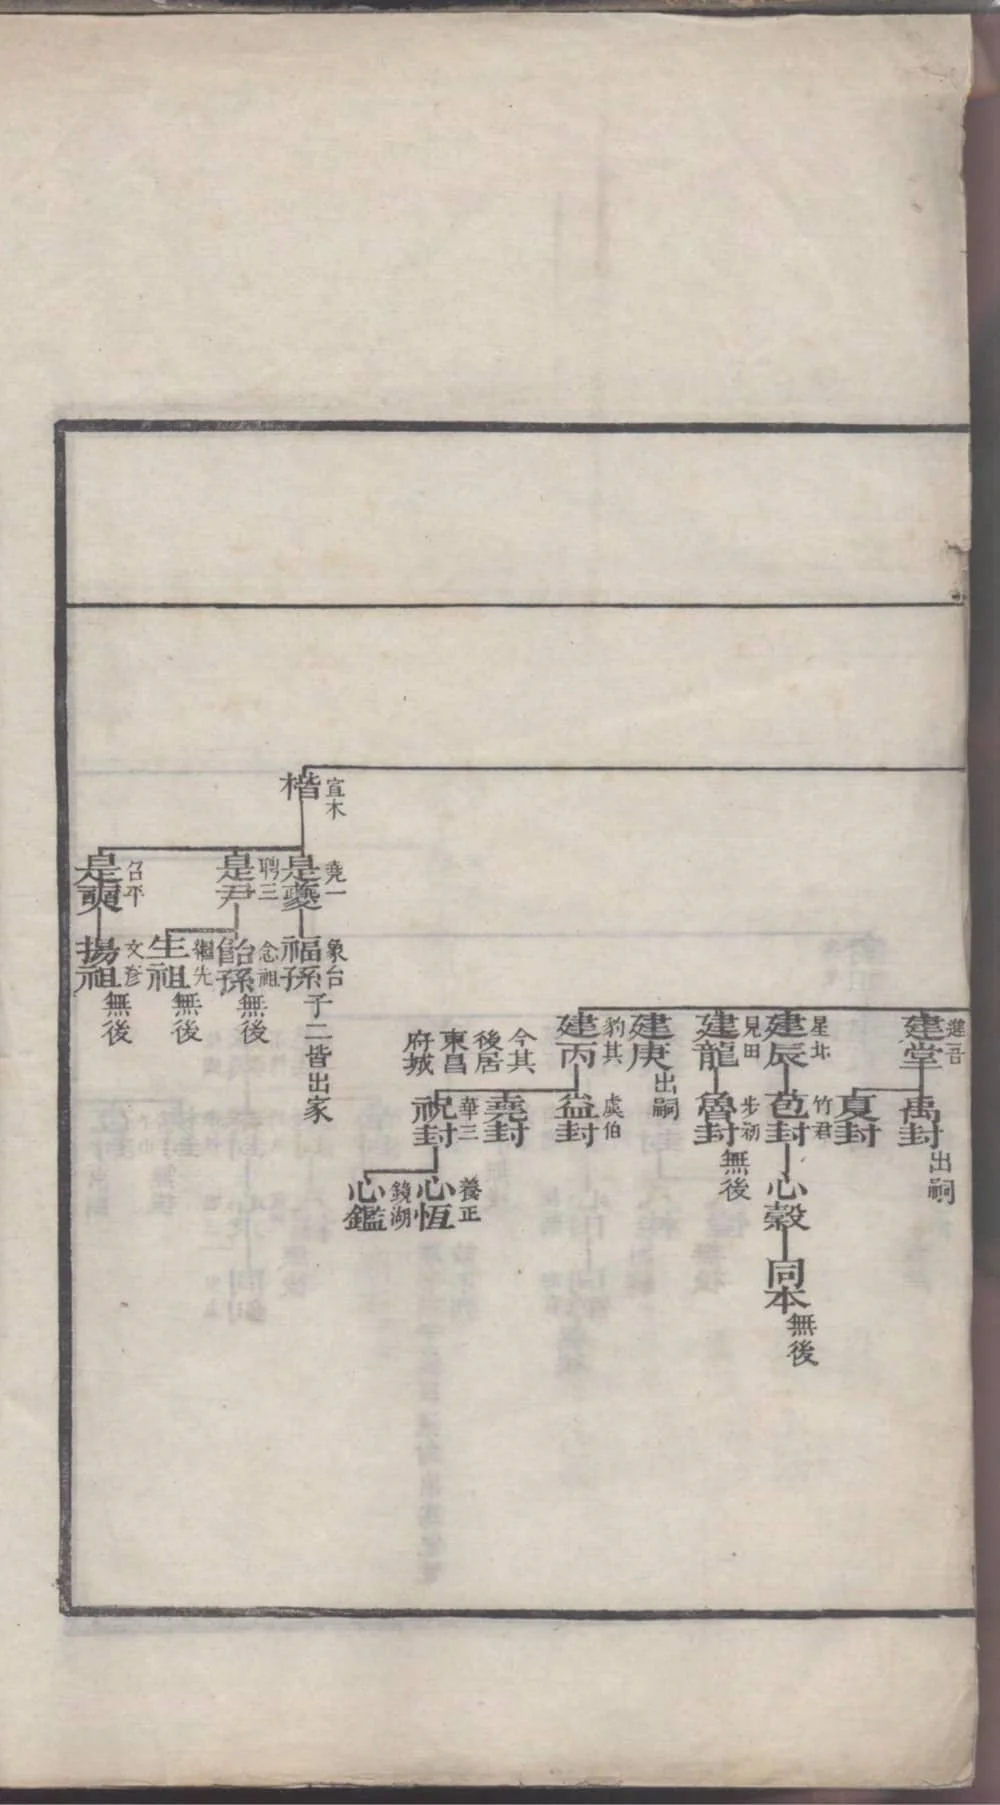 建堂
禹封
出嗣
夏封
星北
建辰
竹君
芭封
心穀
同本
無後
見田
建龍
步初
魯封
無後
建庚
出嗣
豹其
建丙
虞伯
益封
堯封
今其
後居
東昌
府城
華三
祝封
養正
心恆
鏡湖
心鑑
宜木
楷
堯一
是夔
象台
福孫
子二皆出家
聘三
是尹
念祖
飴孫
無後
繩先
生祖
無後
召平
是奭
文彥
揚祖
無後